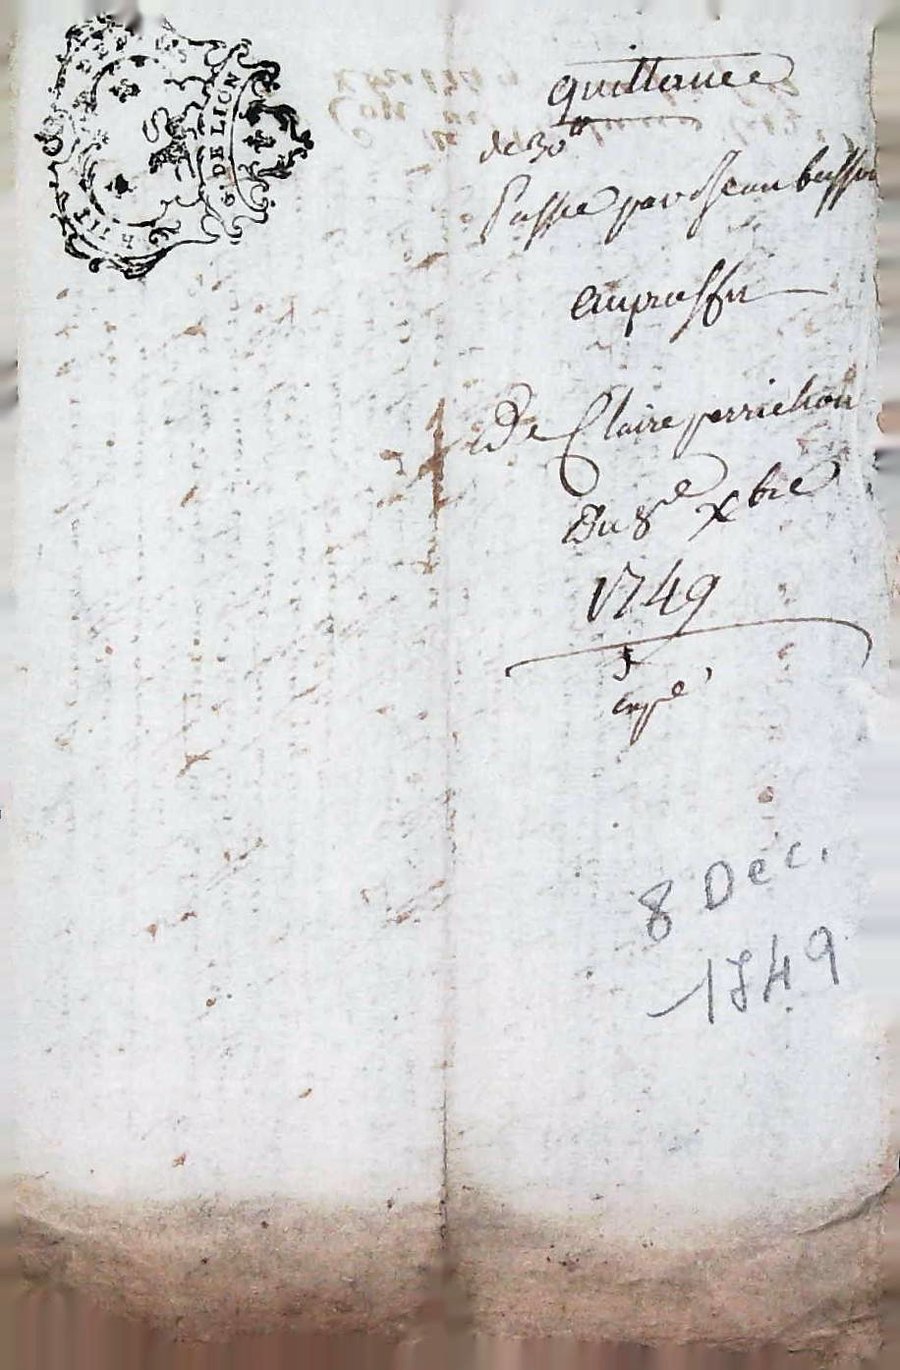 G. DE LION
PETIT
quittance
de 30 ll
Passée par Jean buisson
au proffit
De Claire perrichon
Du 8e Xbre
1749
expé
8 Dec.
1749